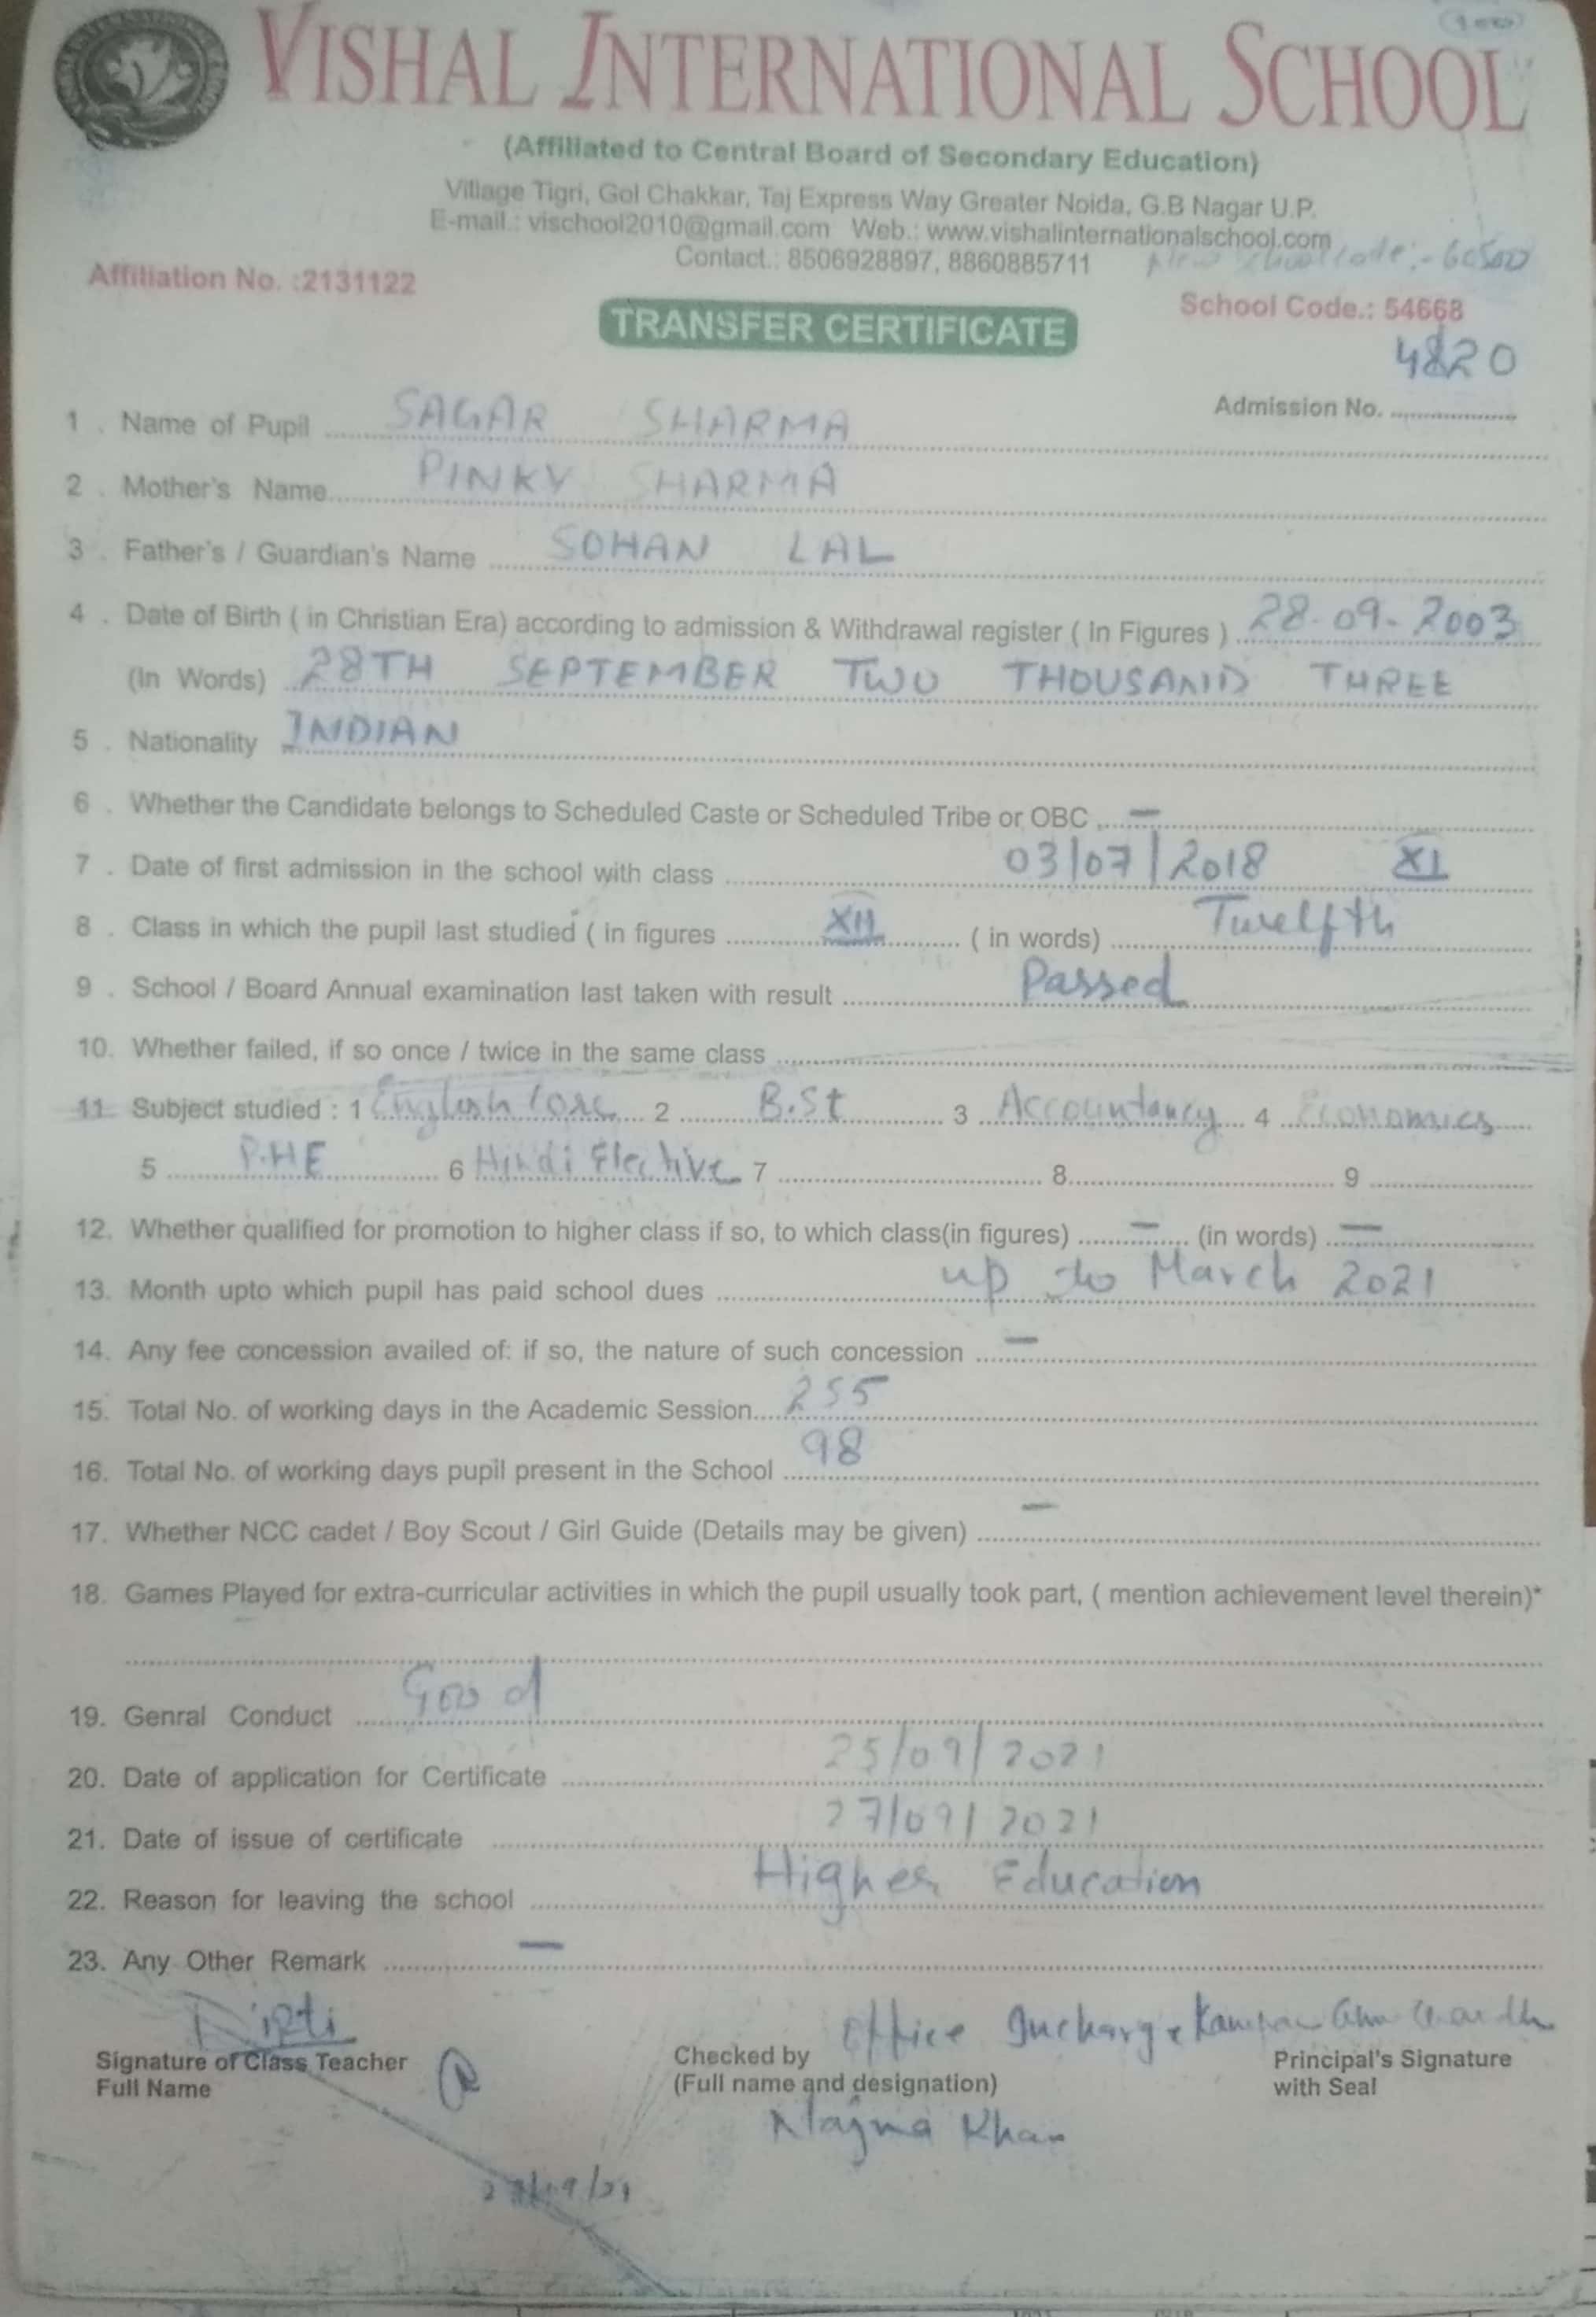 VISHAL INTERNATIONAL SCHOOL
(Affiliated to Central Board of Secondary Education)
Village Tigri, Gol Chakkar, Taj Express Way Greater Noida, G.B Nagar U.P.
E-mail.: vischool2010@gmail.com Web.: www.vishalinternationalschool.com
Contact.: 8506928897, 8860885711
New School code:- 60500
Affiliation No. :2131122
School Code.: 54668
TRANSFER CERTIFICATE
4820
Admission No.
1 . Name of Pupil SAGAR SHARMA
2 . Mother's Name PINKY SHARMA
3 . Father's / Guardian's Name SOHAN LAL
4 . Date of Birth ( in Christian Era) according to admission & Withdrawal register ( In Figures ) 28-09-2003
(In Words) 28TH SEPTEMBER TWO THOUSAND THREE
5 . Nationality INDIAN
6 . Whether the Candidate belongs to Scheduled Caste or Scheduled Tribe or OBC —
7 . Date of first admission in the school with class 03/07/2018 XI
8 . Class in which the pupil last studied ( in figures XII ( in words) Twelfth
9 . School / Board Annual examination last taken with result Passed
10. Whether failed, if so once / twice in the same class
11. Subject studied : 1 English Core 2 B.St 3 Accountancy 4 Economics
5 P.HE 6 Hindi Elective 7 8 9
12. Whether qualified for promotion to higher class if so, to which class(in figures) — (in words) —
13. Month upto which pupil has paid school dues up to March 2021
14. Any fee concession availed of: if so, the nature of such concession —
15. Total No. of working days in the Academic Session 255
16. Total No. of working days pupil present in the School 98
17. Whether NCC cadet / Boy Scout / Girl Guide (Details may be given) —
18. Games Played for extra-curricular activities in which the pupil usually took part, ( mention achievement level therein)*
19. Genral Conduct Good
20. Date of application for Certificate 25/09/2021
21. Date of issue of certificate 27/09/2021
22. Reason for leaving the school Higher Education
23. Any Other Remark —
Office Incharge
Signature of Class Teacher Checked by Principal's Signature
Full Name (Full name and designation) with Seal
Najma Khan